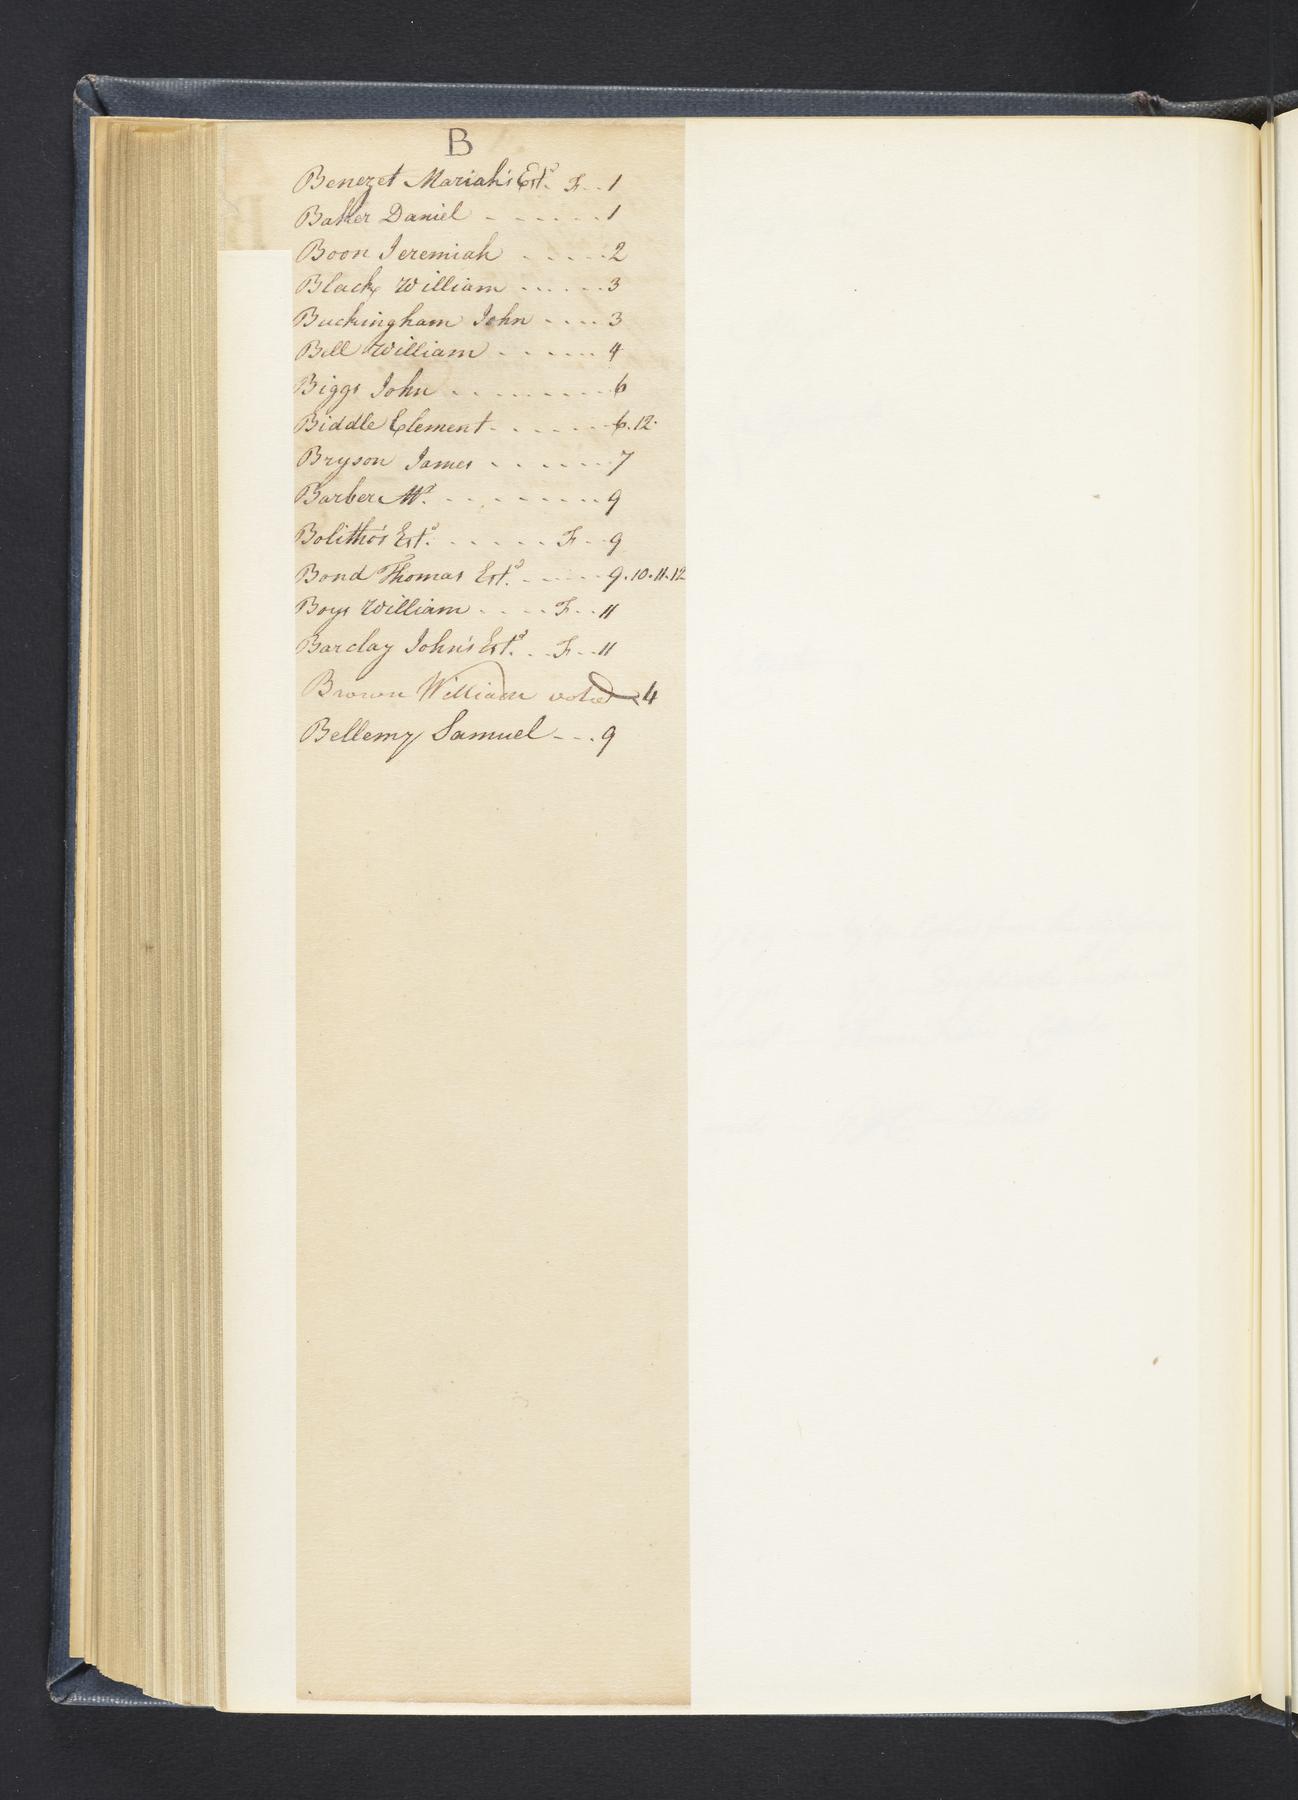 B
Benezet Mariah's Est.e F - - 1
Baker Daniel - - - - - - 1
Boon Jeremiah - - - - - 2
Black William - - - - - - 3
Buckingham John - - - - 3
Bell William - - - - - - 4
Biggs John - - - - - - - - 6
Biddle Clement - - - - - - 6.12.
Bryson James - - - - - - 7
Barber - - - - - - - - 9
Bolitho's Est.e - - - - - F - - 9
Bond Thomas Est.e - - - - - 9.10.11.12
Boys William - - - - F - - 11
Barclay John's Est.e - - F - - 11
Brown William 4
Bellemy Samuel - - - 9